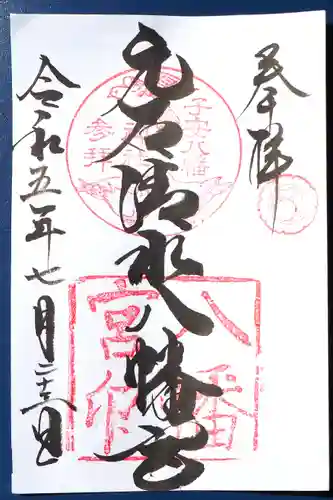 奉拝
元石清水八幡宮
令和五年七月二十二日
子安八幡
参拝
八幡宮印